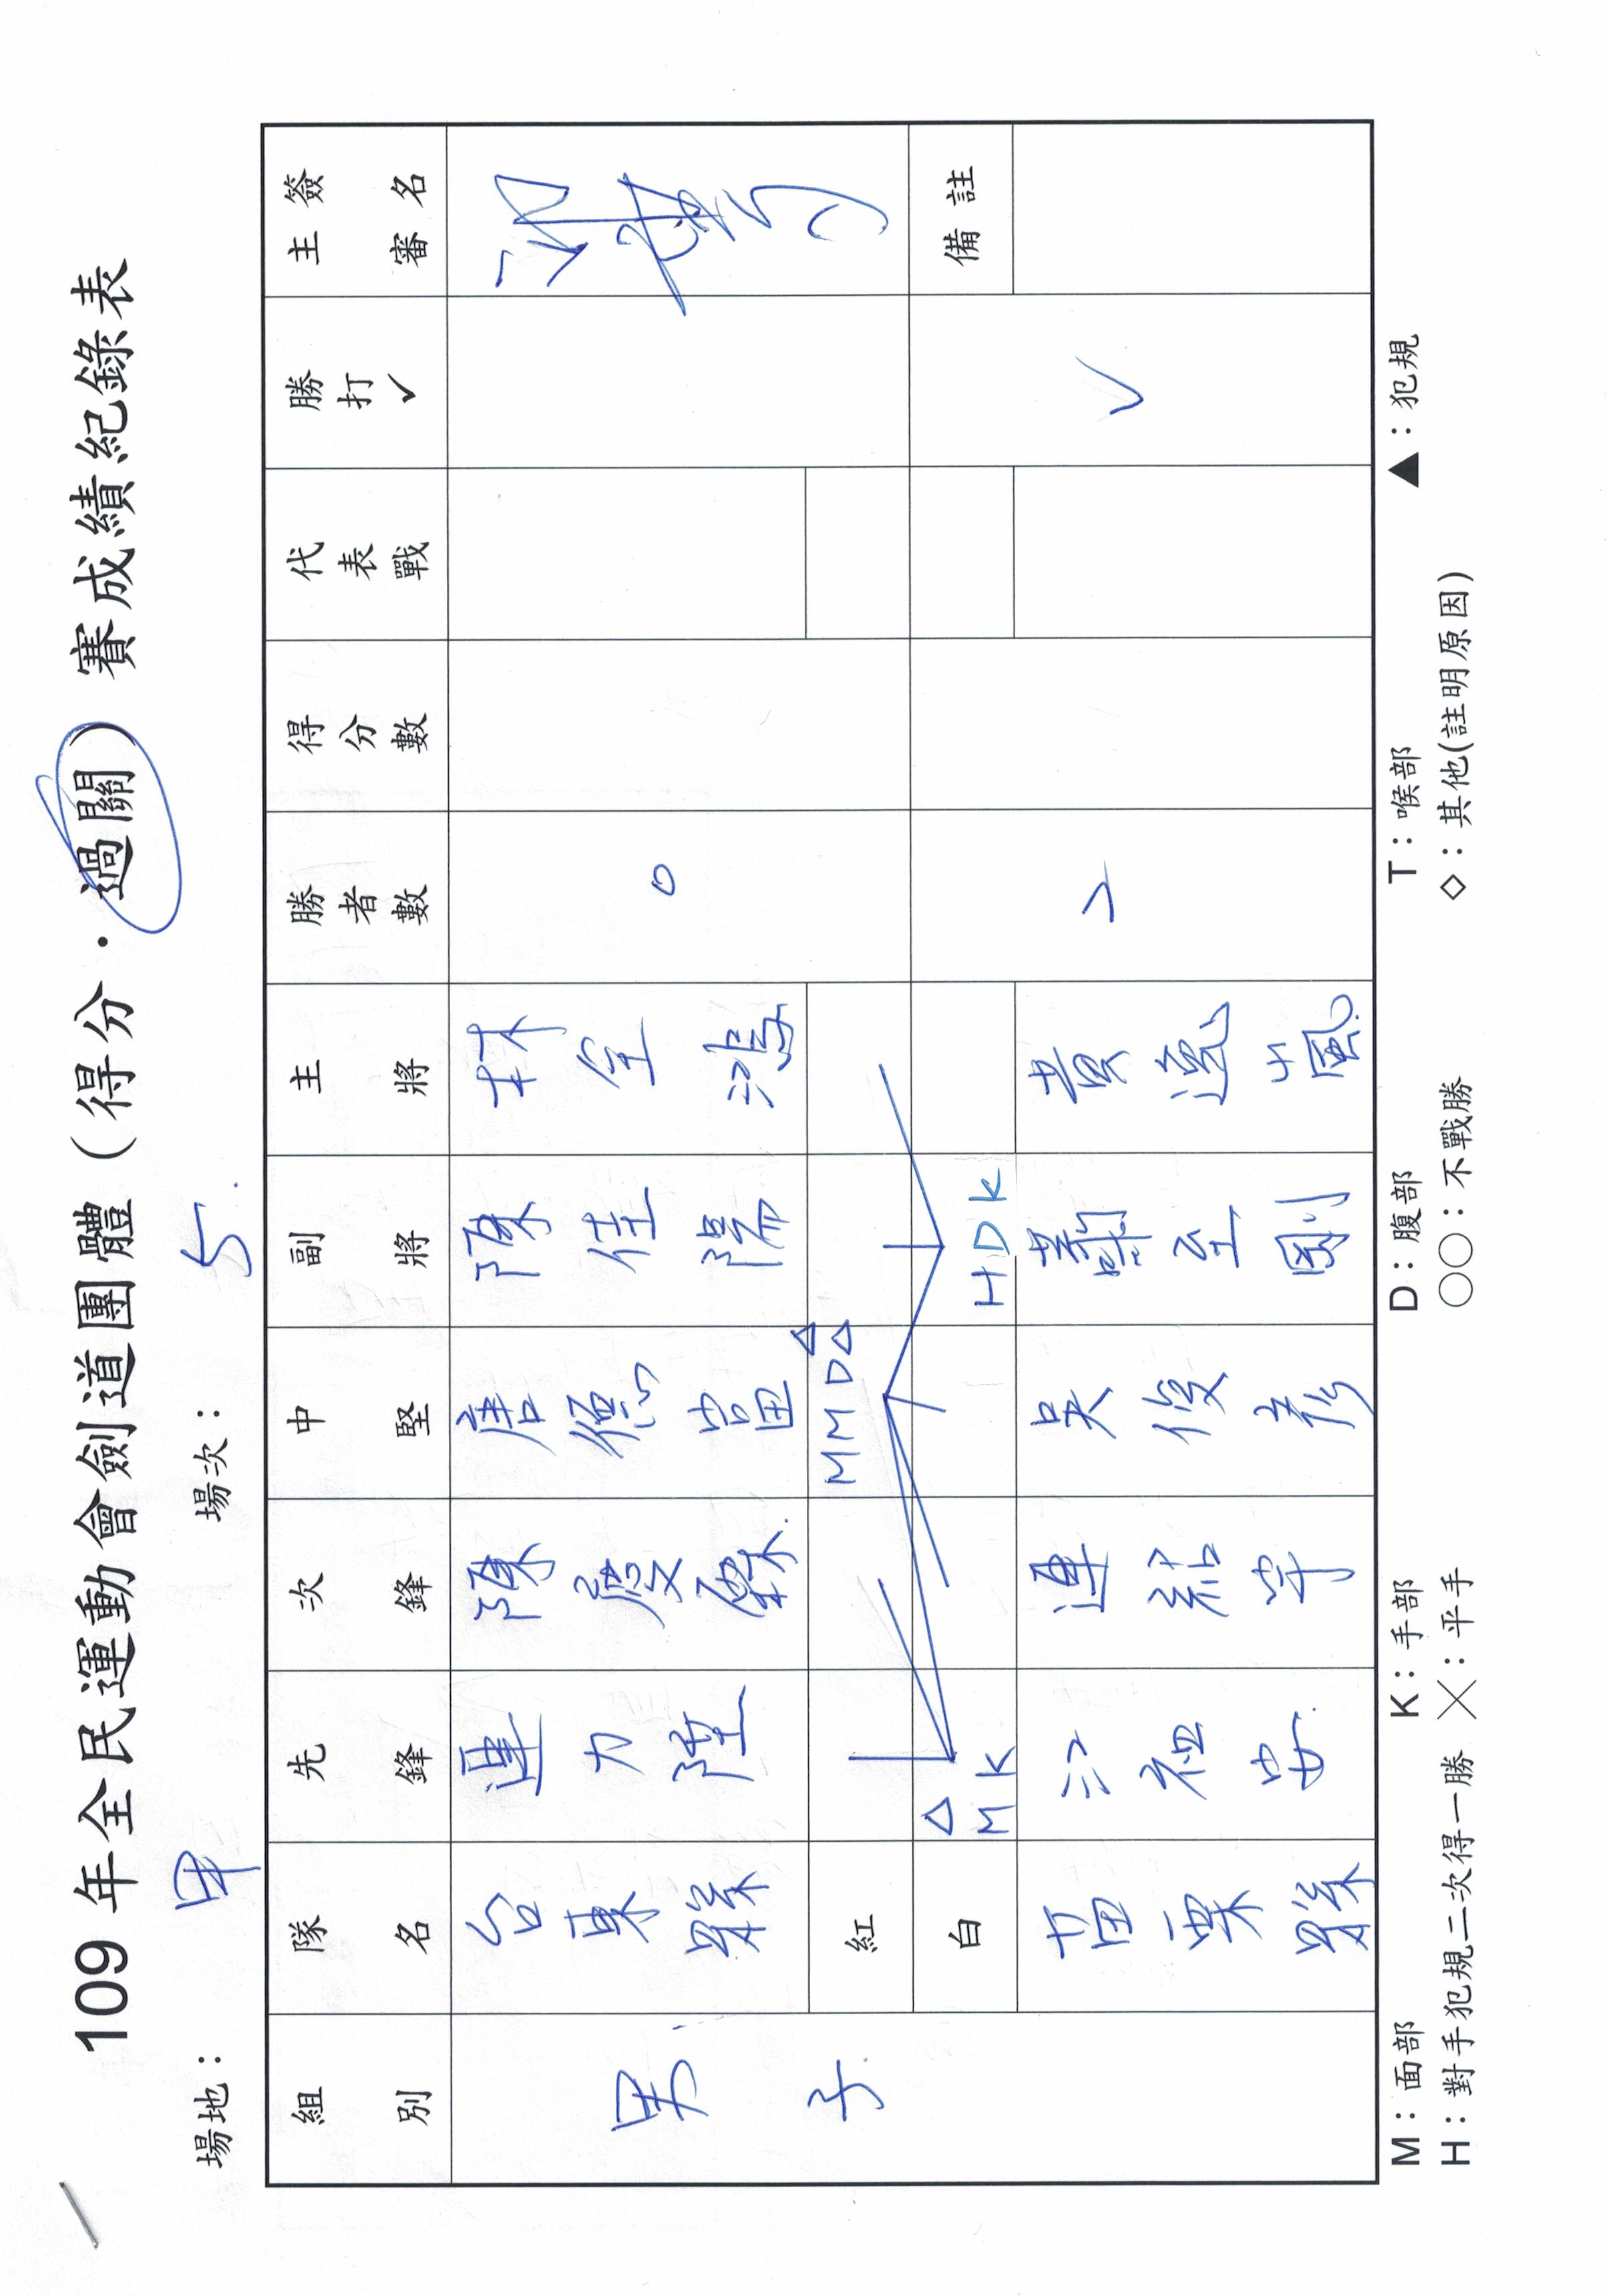 109 年全民運動會劍道團體（得分．過關）賽成績紀錄表
場地： 甲 場次： 5.
組別 隊名 先鋒 次鋒 中堅 副將 主將 勝者數 得分數 代表戰 勝打✓ 主審簽名
男子 台東縣 連力陞 陳 傑 唐德富 陳佳陽 林全鴻 0
紅 MMD△△
白 △MK HDK 備註
苗栗縣 江祖安 連紹宇 吳俊彥 蘭至剛 黃逸嵐 ✓
M：面部 K：手部 D：腹部 T：喉部 ▲：犯規
H：對手犯規二次得一勝 ╳：平手 ○○：不戰勝 ◇：其他(註明原因)